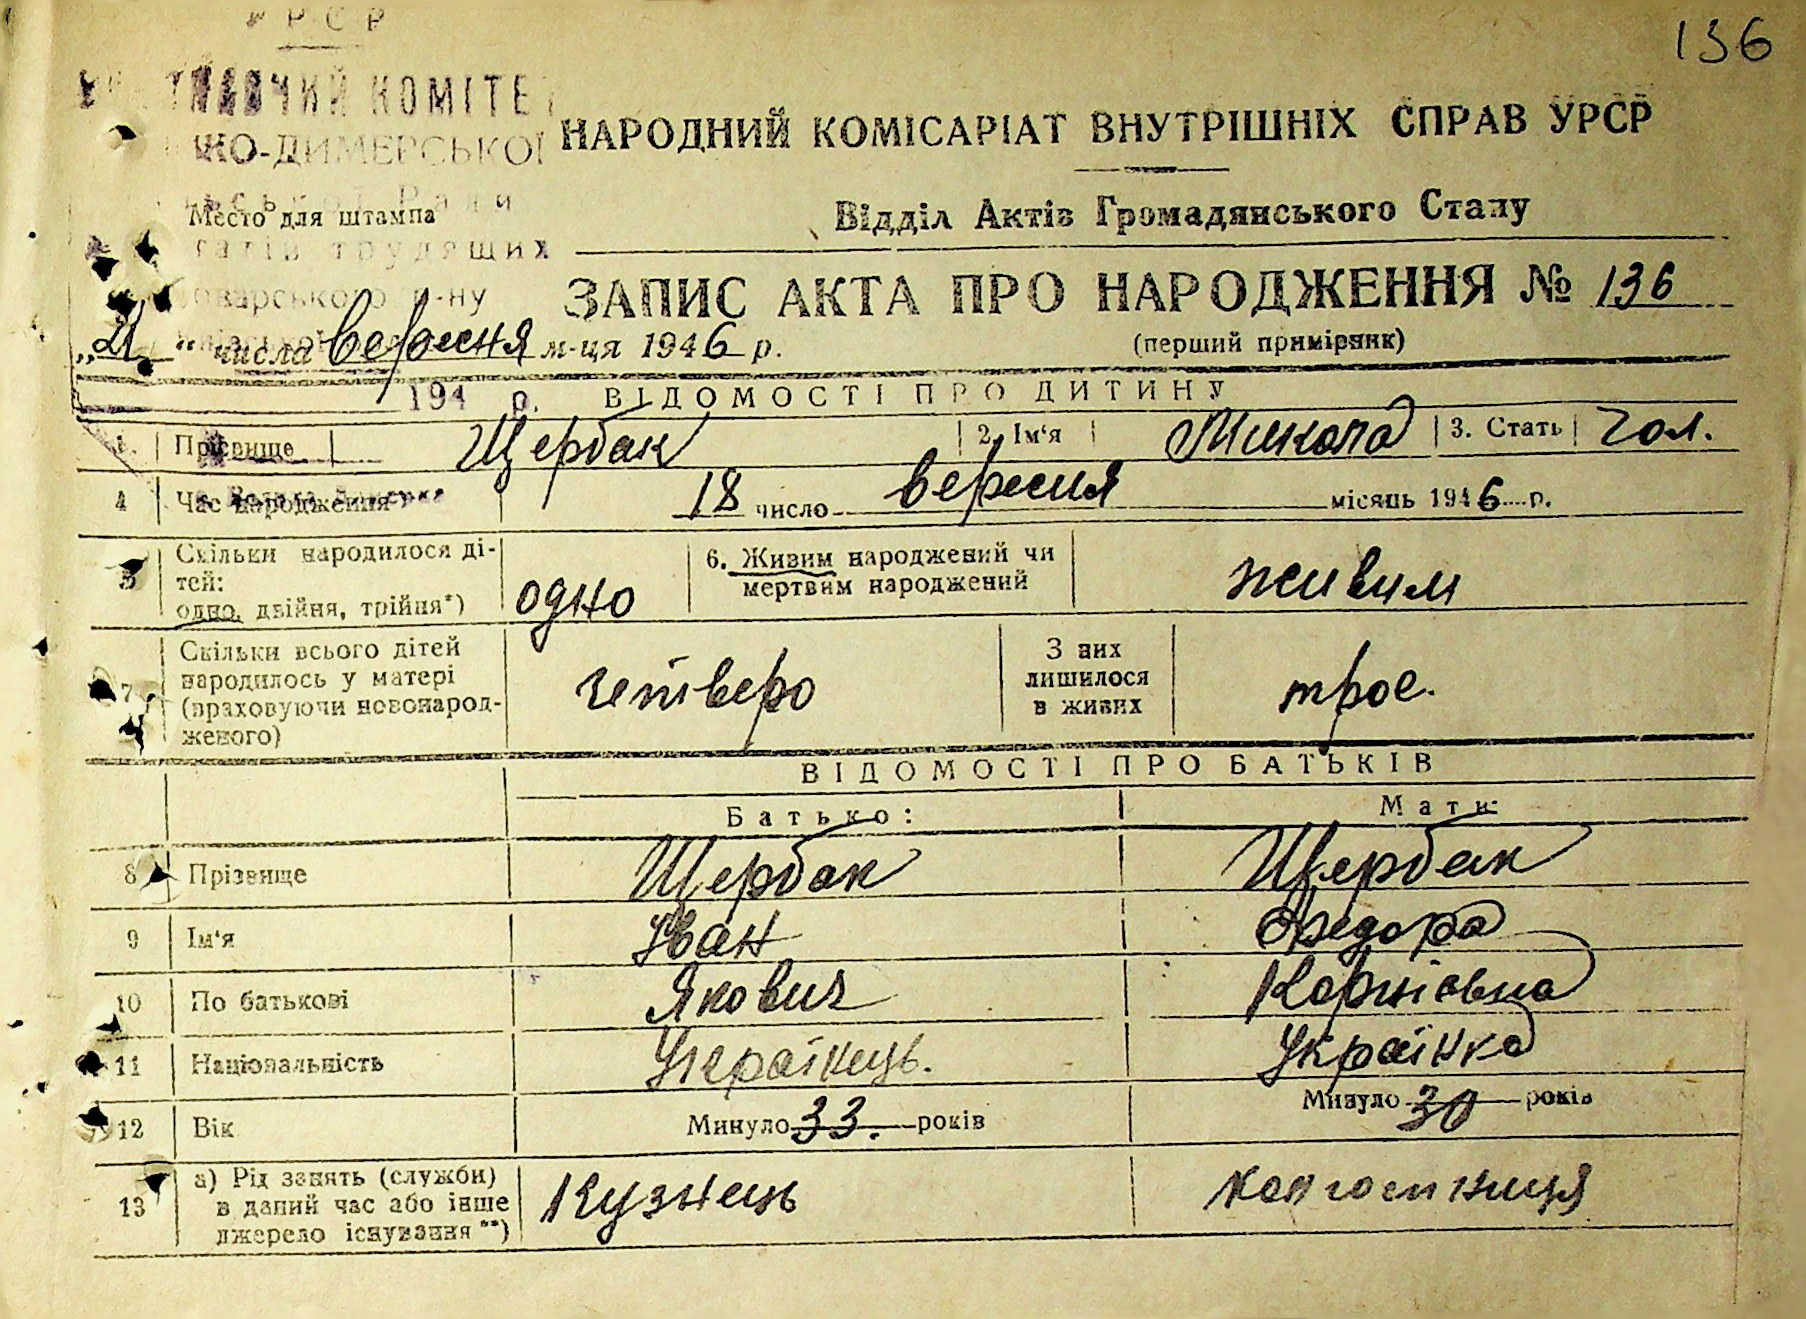 136
РСР
КОМІТЕ
НО-ДИМЕРСЬКОЇ
Ради
Место для штампа
трудящих
р-ну
НАРОДНИЙ КОМІСАРІАТ ВНУТРІШНІХ СПРАВ УРСР
Відділ Актів Громадянського Стану
ЗАПИС АКТА ПРО НАРОДЖЕННЯ № 136
(перший примірник)
„21“ числа вересня м-ця 1946 р.
194 р.
ВІДОМОСТІ ПРО ДИТИНУ
1. Прізвище Щербак 2. Ім‘я Микола 3. Стать чол.
4 Час народження 18 число вересня місяць 1946 р.
5 Скільки народилося ді-
тей:
одно, двійня, трійня*) одно
6. Живим народжений чи
мертвим народжений живим
7 Скільки всього дітей
народилось у матері
(враховуючи новонарод-
женого) четверо
З них
лишилося
в живих троє.
ВІДОМОСТІ ПРО БАТЬКІВ
Батько: Мати:
8 Прізвище Щербак Щербак
9 Ім‘я Іван Федора
10 По батькові Якович Корніовна
11 Національність Українець. Українка
12 Вік Минуло 33. років Минуло 30 років
13 а) Рід занять (служби)
в даний час або інше
джерело існування**) Кузнець колгоспниця